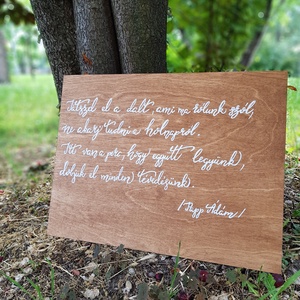 Játszd el a dalt, ami ma rólunk szól,
ne akarj tudni a holnapról.
Itt van a perc, hogy együtt legyünk,
dobjuk el minden fegyverünk.
/Papp Ádám/